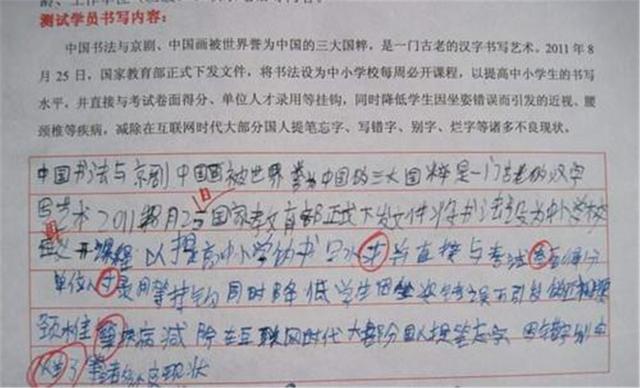 测试学员书写内容:
中国书法与京剧、中国画被世界誉为中国的三大国粹，是一门古老的汉字书写艺术。2011年8
月25日，国家教育部正式下发文件，将书法设为中小学校每周必开课程，以提高中小学生的书写
水平，并直接与考试卷面得分、单位人才录用等挂钩，同时降低学生因坐姿错误而引发的近视、腰
颈椎等疾病，减除在互联网时代大部分国人提笔忘字、写错字、别字、烂字等诸多不良现状。
中国书法与京剧中国画被世界誉为中国的三大国粹是一门古老的汉字
艺术2011 8月25日国家教育部正式下发文件将书法设为中小学校
开课程以提高中小学 书 水 并直接与考试 得分
单位人才录用等 同时降低学生因坐 引发
颈椎等疾病减除在互联网时代大部分国人提笔忘字 别字
现状